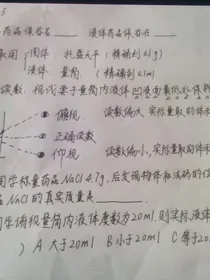 3
药品保存在____ 液体药品保存在____
取用 固体 托盘天平 (精确到0.1g)
液体 量筒 (精确到0.1ml)
读数,视线要于量筒内液体凹液面最低处保持
俯视 读数偏大,实际量取的体
正确读数
仰视 读数偏小,实际量取的体
同学称量药品NaCl 4.7g,后发现物体和砝码的位
品NaCl的真实质量是____
同学俯视量筒内液体度数为20ml,则实际液体
) A 大于20ml B 小于20ml C 等于20